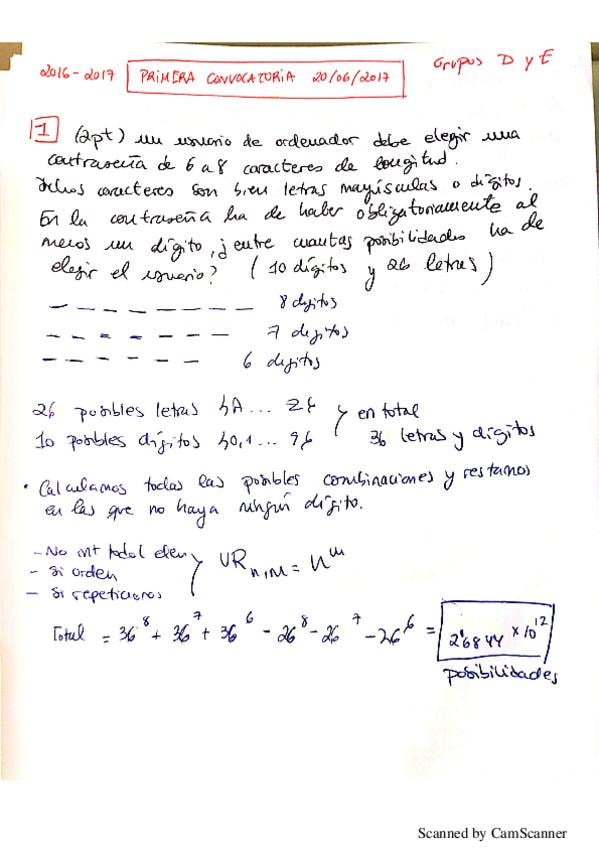 2016-2017 PRIMERA CONVOCATORIA 20/06/2017 Grupos D y E
1 (2pt) un usuario de ordenador debe elegir una
contraseña de 6 a 8 caracteres de longitud.
Dichos caracteres son bien letras mayúsculas o dígitos.
En la contraseña ha de haber obligatoriamente al
menos un dígito, ¿entre cuantas posibilidades ha de
elegir el usuario? (10 dígitos y 26 letras)
— — — — — — — — 8 digitos
— — — — — — — 7 digitos
— — — — — — 6 digitos
26 posibles letras {A... Z} } en total
10 posibles dígitos {0,1... 9} 36 letras y dígitos
• Calculamos todas las posibles combinaciones y restamos
en las que no haya ningún dígito.
- No int todos elem
- Si orden } VR n,m = n^m
- Si repeticiones
Total = 36^8 + 36^7 + 36^6 - 26^8 - 26^7 - 26^6 = 2'6844 x 10^12
posibilidades
Scanned by CamScanner